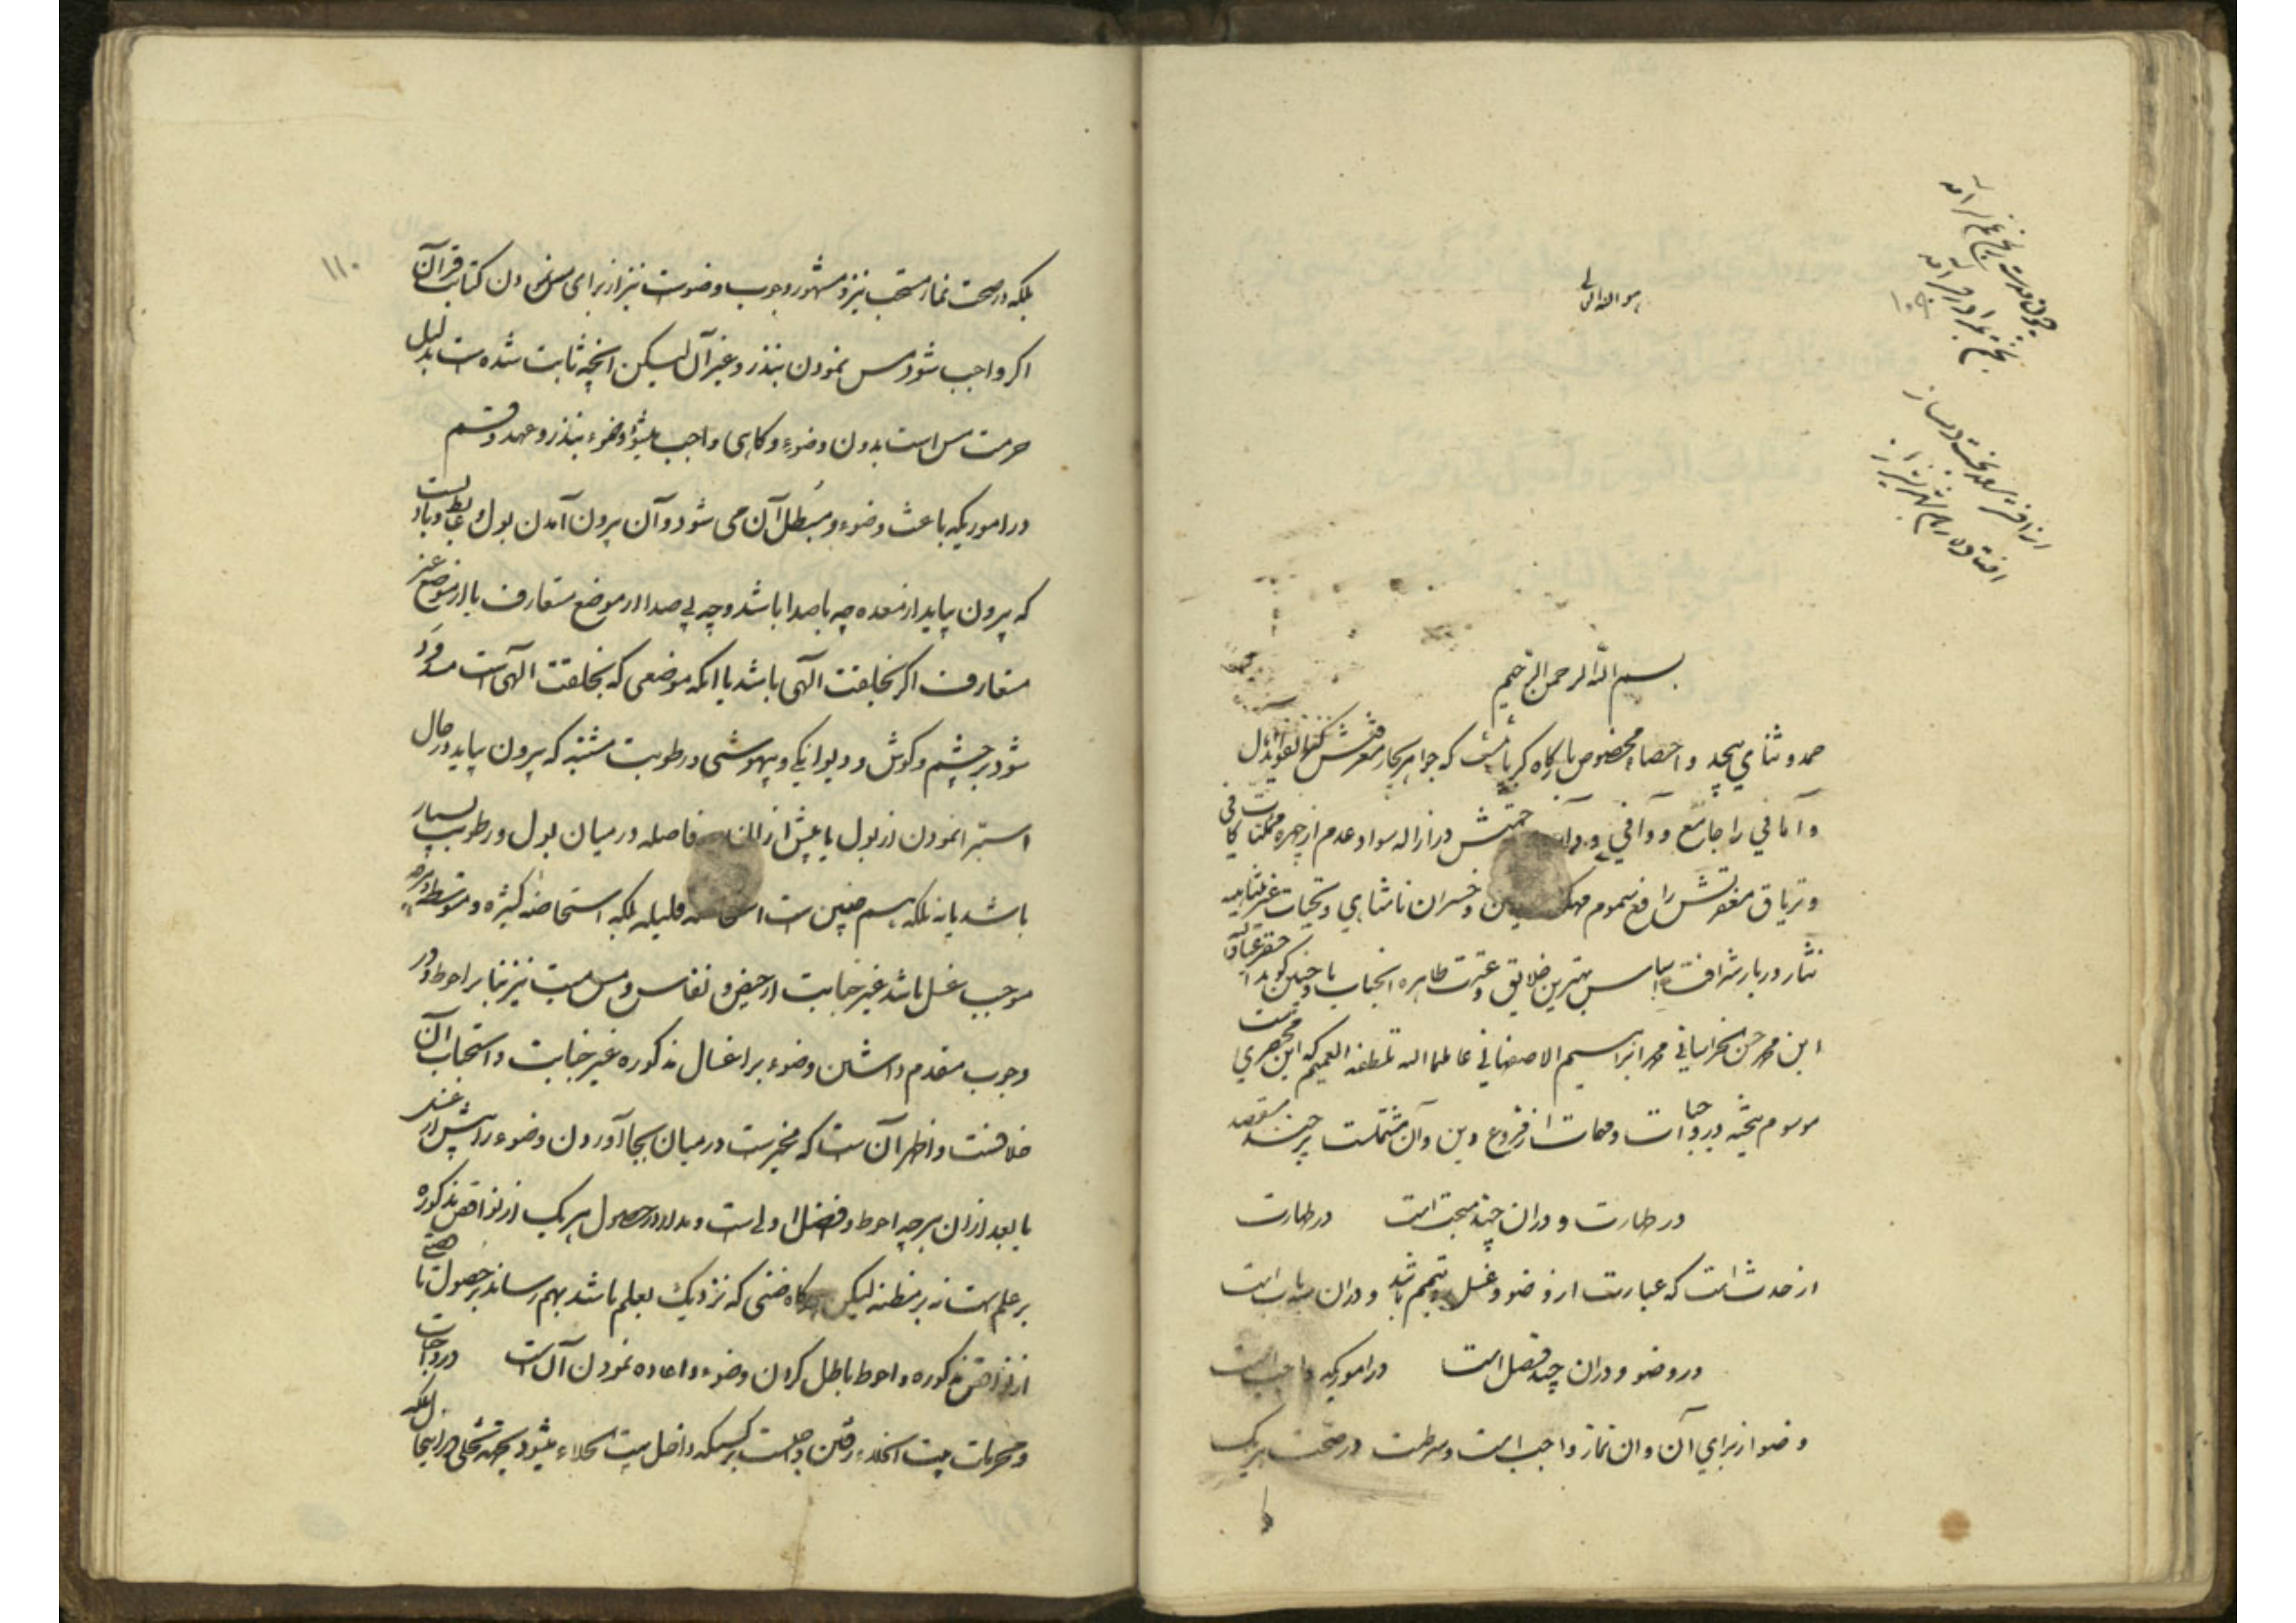 هو الله تعالی
بسم الله الرحمن الرحیم
حمد و ثنای بیحد و احصاء مخصوص بارگاه کبریائیست که جواهر بحار معرفتش
و آنافی را جامع و وافی و حکمتش در ازاله سواد عدم از چهره ممکنات کافی
و تریاق مغفرتش رافع سموم و خسران نامتناهی و تحیات غیر متناهیه
نثار دربار شرافت اساس بهترین خلایق و عترت طاهره انجناب باد چنین کوید احقر عباد الله
ابن محمد حسن الخراسانی محمد ابراهیم الاصفهانی عاملهما الله بلطفه العمیم که این مختصریست
موسوم بتحفه در واجبات و مهمات از فروع دین و آن مشتملست بر چند مقصد
در طهارت و دران چند مبحث است در طهارت
از حدث است که عبارت از وضو و غسل و تیمم باشد و دران سه باب است
در وضو و دران چند فصل است در اموریکه واجب است
وضو از برای آن و ان نماز واجب است و شرطست در صحت هر یک
۱۱۰
بلکه در صحت نماز مستحب نیز و مشهور وجوب وضوست نیز از برای مس نمودن کتابت قرآن
اکر واجب شود مس نمودن بنذر و غیر آن لیکن انچه ثابت شده است بدلیل
حرمت مس است بدون وضوء و کاهی واجب میشود وضوء بنذر و عهد و قسم
در اموریکه باعث وضوء و مبطل آن می شود و آن بیرون آمدن بول و غایط و بادیست
که بیرون بیاید از معده چه با صدا باشد و چه بی صدا از موضع متعارف یا از موضع غیر
متعارف اکر بخلقت الهی باشد یا انکه موضعی که بخلقت الهی است مسدود
شود بر چشم و کوش و دیوانکی و بیهوشی و رطوبت مشتبه که بیرون بیاید در حال
استبرا نمودن از بول یا پیش از ان فاصله در میان بول و رطوبت بسیار
باشد یا نه بلکه هم چنین است استحاضه قلیله بلکه استحاضه کثیره و متوسطه و هر چه
موجب غسل باشد غیر جنابت از حیض و نفاس و مس میت نیز بنا بر احوط و در
وجوب مقدم داشتن وضوء بر اغسال مذکوره غیر جنابت و استحباب آن
خلافست و اظهر آن ست که مخیرست در میان بجا آوردن وضوء را پیش از غسل
یا بعد از ان هر چه احوط و افضل اولی است و مدار در حصول هر یک از نواقض مذکوره
بر علم است نه بر مظنه لیکن هرکاه ظنی که نزدیک بعلم باشد بهم رساند بر حصول
از نواقض مذکوره احوط باطل کردن وضوء و اعاده نمودن آن است در واجبات
و محرمات بیت الخلاء رفتن واجبست بر کسیکه داخل بیت الخلاء میشود بجهة تخلی در اینجا بلکه